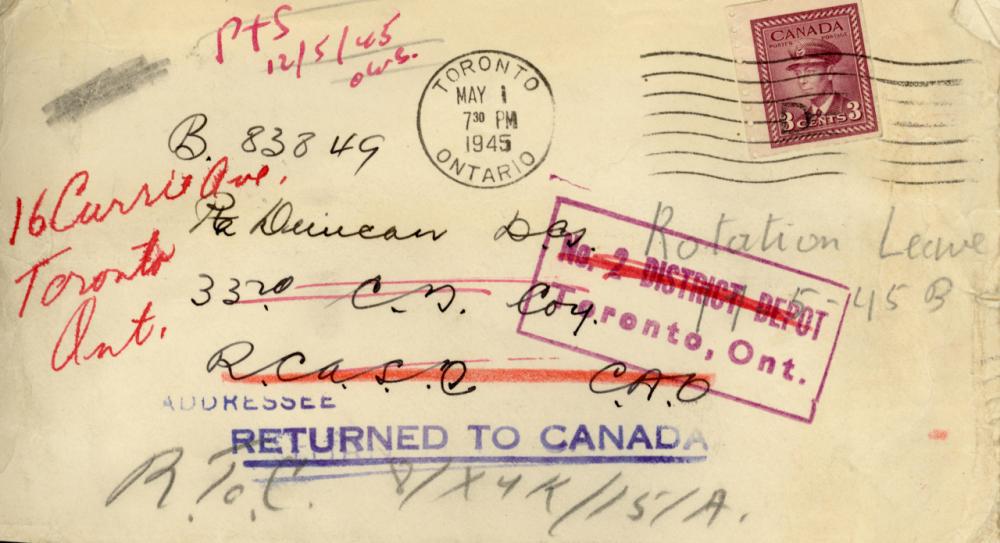 PTS
12/5/45
TORONTO
MAY 1
7 30 PM
1945
ONTARIO
CANADA
POSTES POSTAGE
3 CENTS 3
B. 83849
16 Currie Ave.
Toronto
Ont.
Pte Duncan
Rotation Leave
No. 2 DISTRICT DEPOT
Toronto, Ont.
-5-45 B
33rd C.D. Coy.
R.C.A.S.C C.A.O
ADDRESSEE
RETURNED TO CANADA
R.T.C. 8/X4K/15/A.